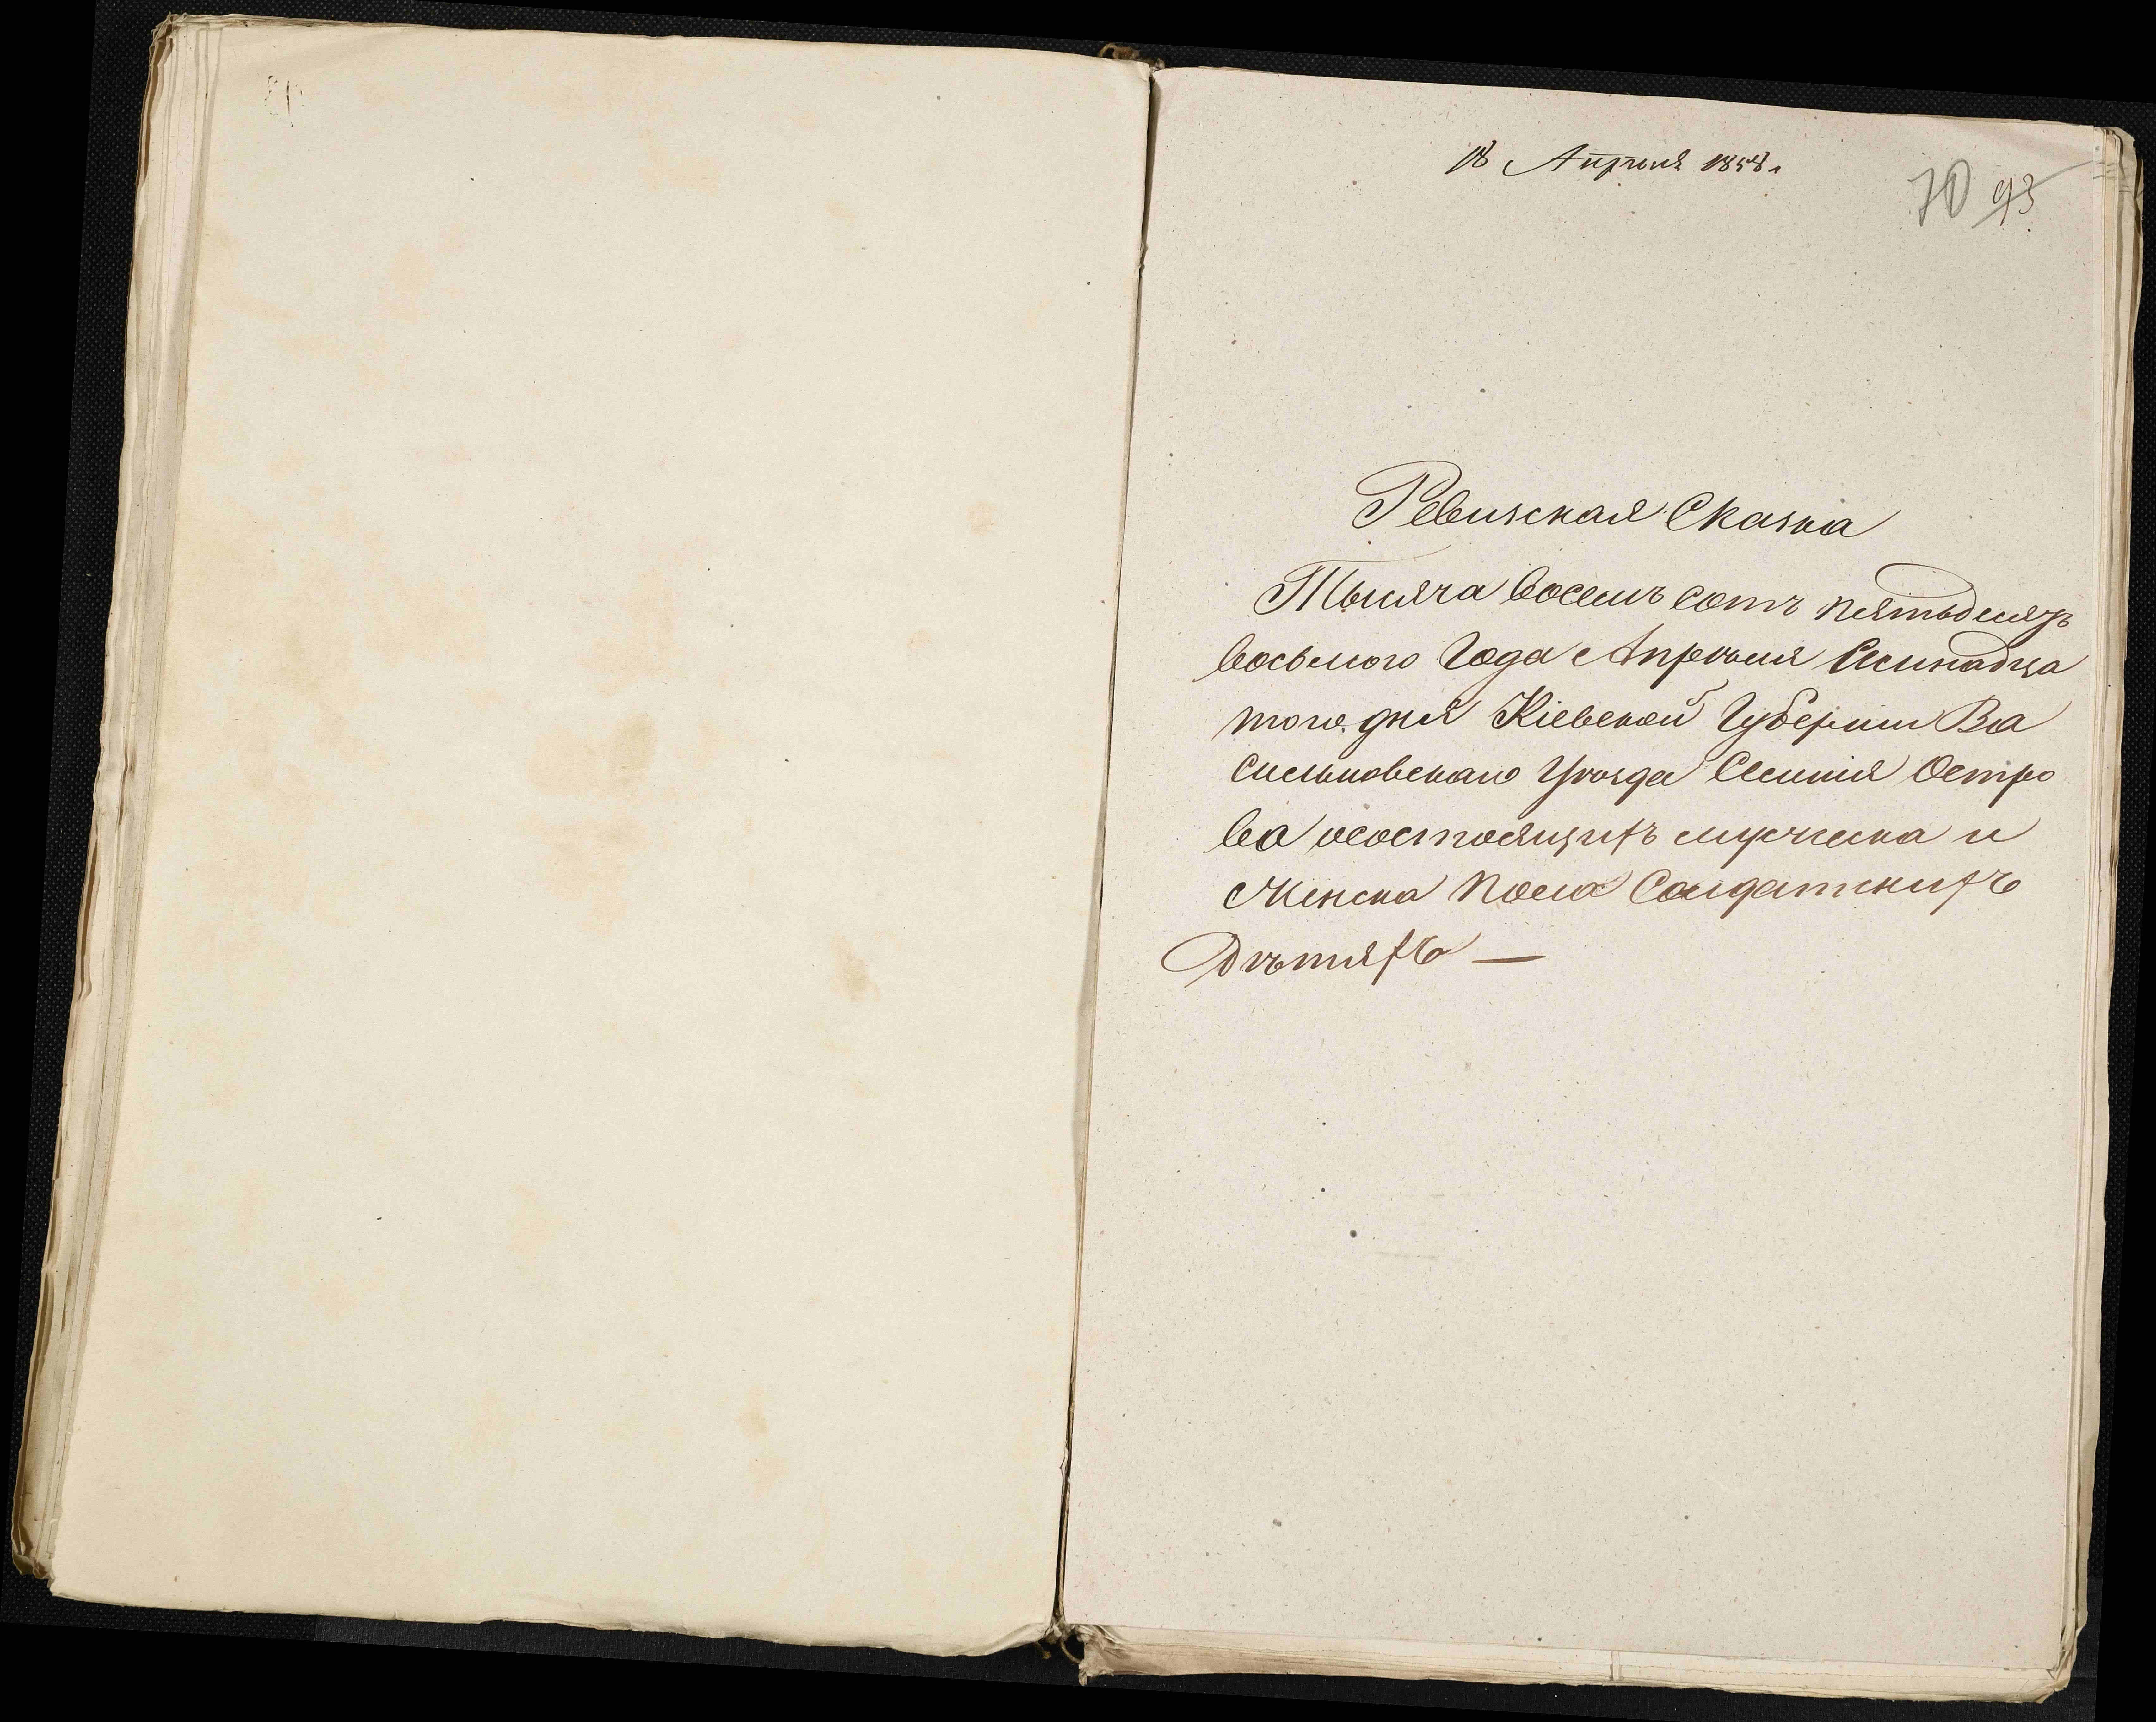 18 Апрѣля 1858 г
70 93
Ревизская Сказка
Тысяча восемь сотъ пятьдесятъ
восьмого Года Апрѣля Семнадца
того дня Кіевской Губерніи Ва
сильковскаго Уѣзда Селенія Остро
ва осостоящихъ мужеска и
Женска пола Солдатскихъ
Дѣтяхъ —